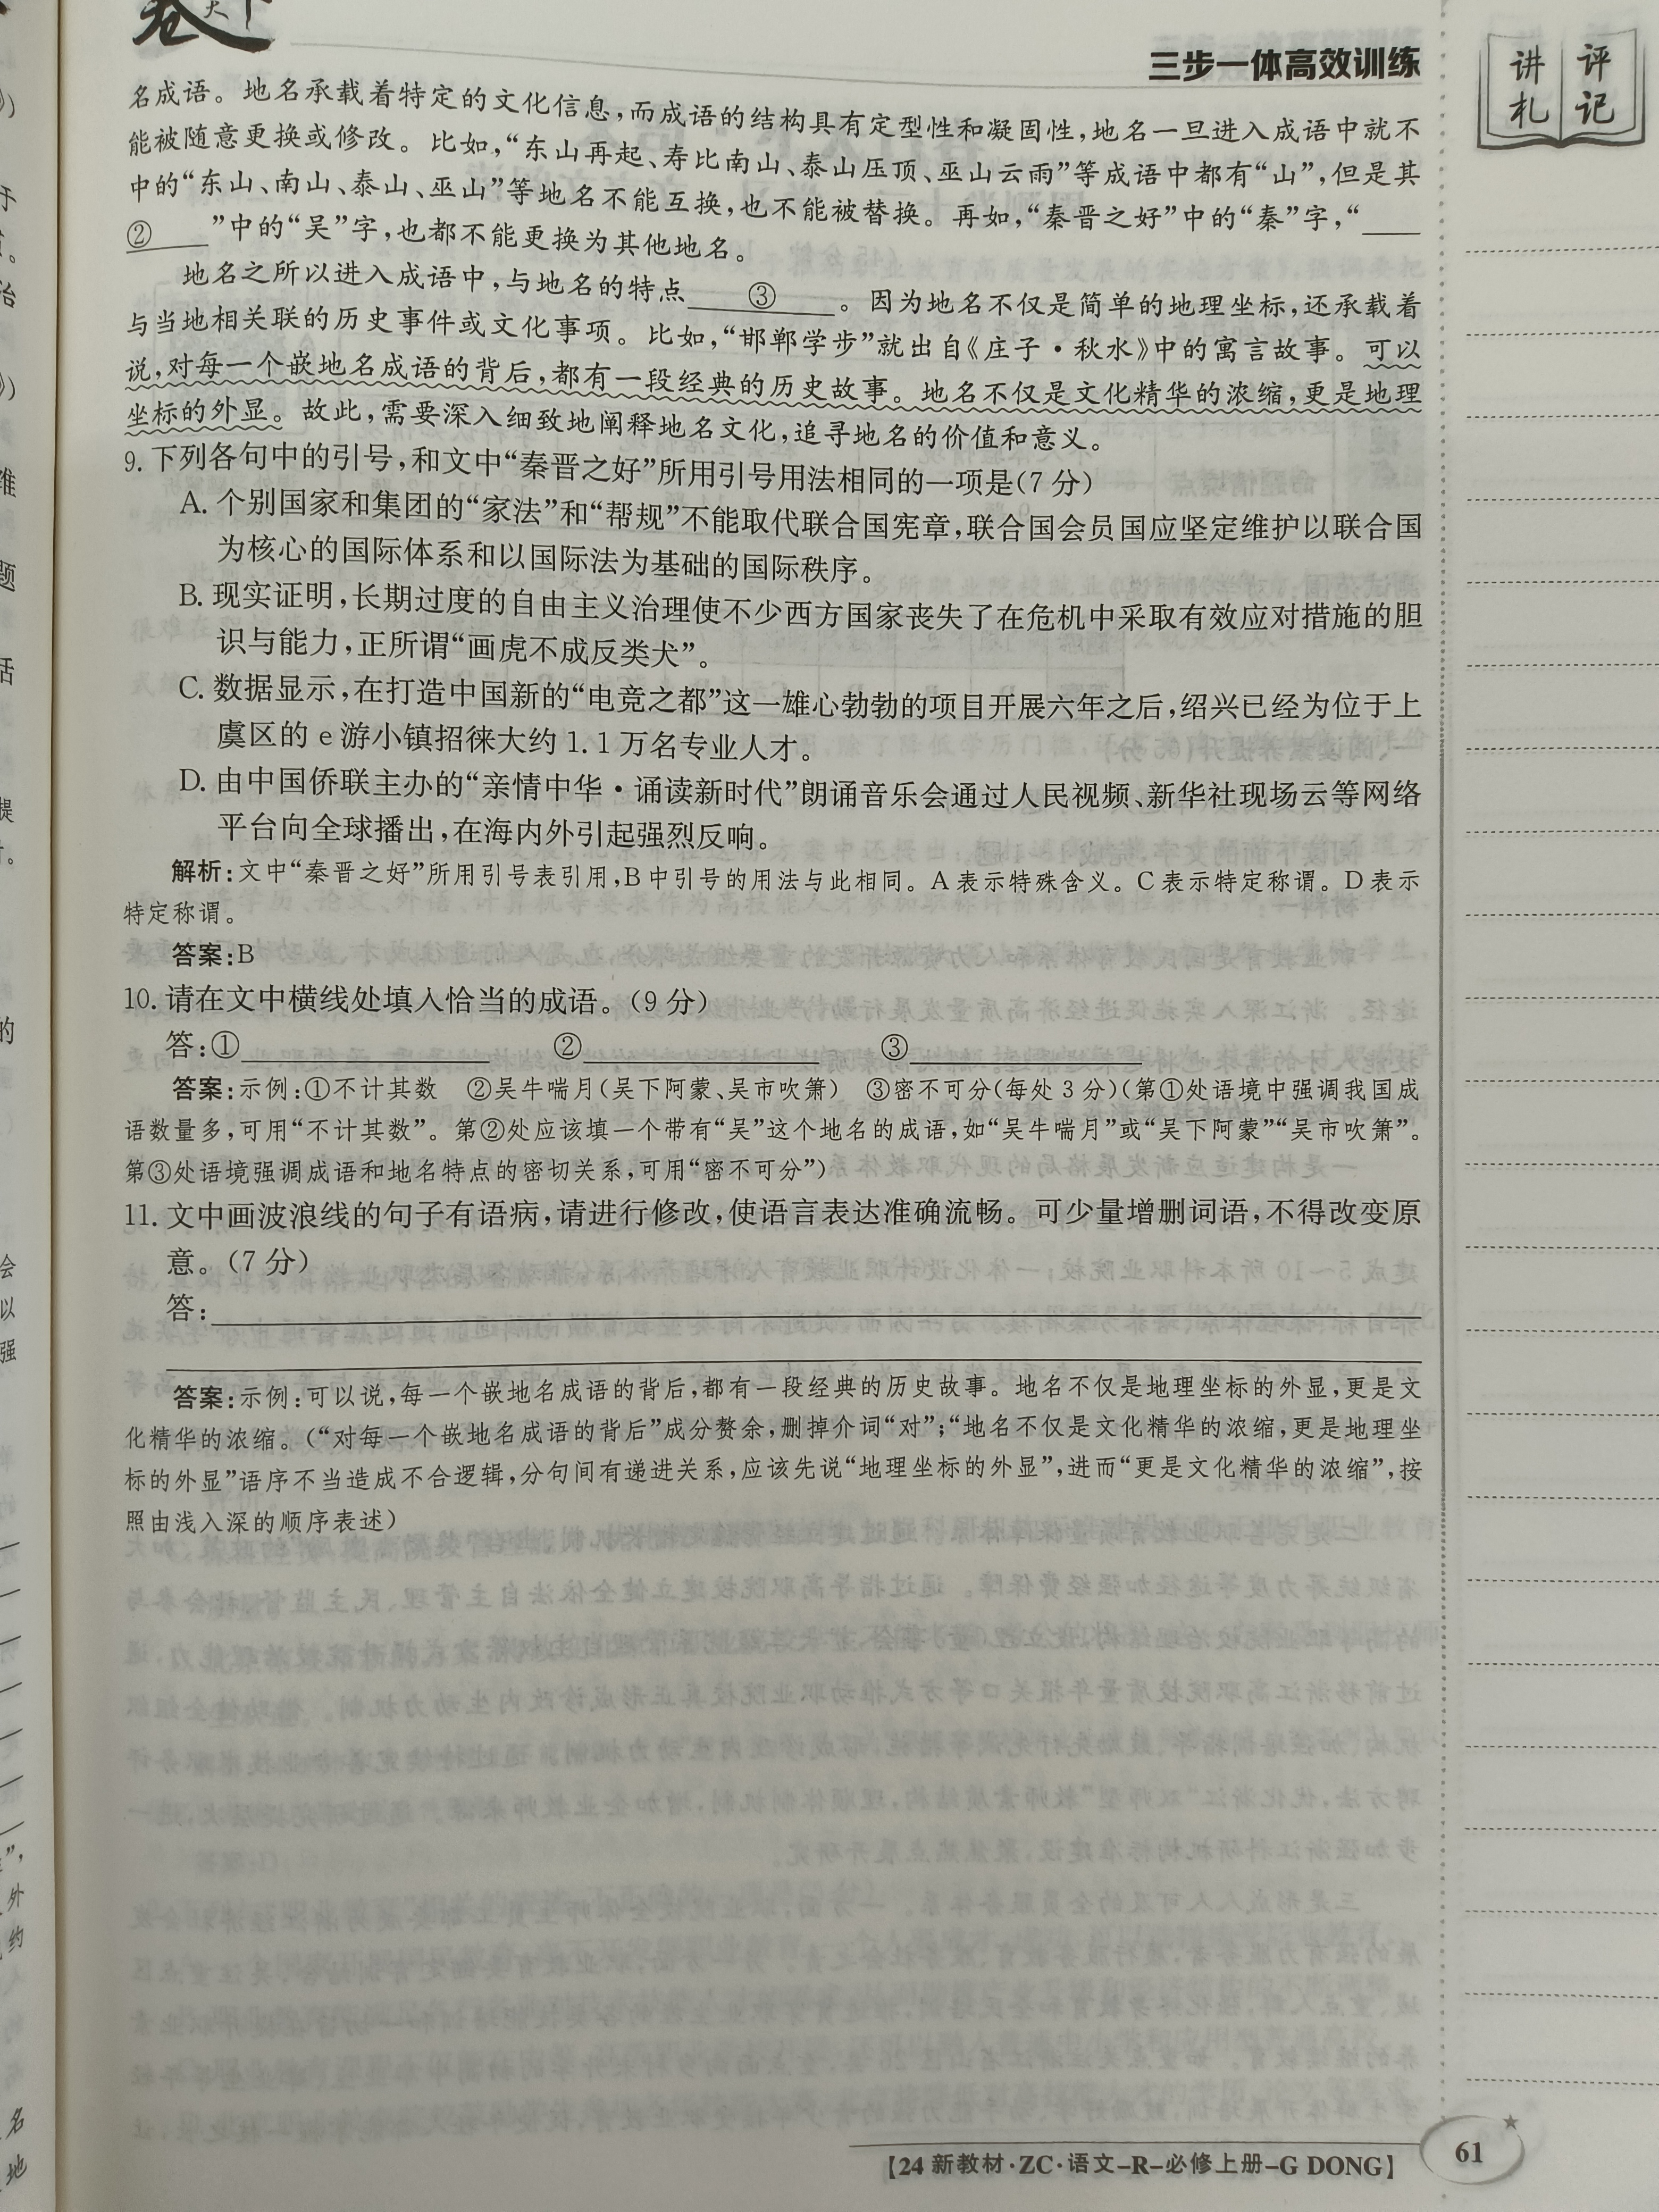 卷天下
三步一体高效训练
讲评
札记
名成语。地名承载着特定的文化信息,而成语的结构具有定型性和凝固性,地名一旦进入成语中就不
能被随意更换或修改。比如,“东山再起、寿比南山、泰山压顶、巫山云雨”等成语中都有“山”,但是其
中的“东山、南山、泰山、巫山”等地名不能互换,也不能被替换。再如,“秦晋之好”中的“秦”字,“____
②____”中的“吴”字,也都不能更换为其他地名。
地名之所以进入成语中,与地名的特点____③____。因为地名不仅是简单的地理坐标,还承载着
与当地相关联的历史事件或文化事项。比如,“邯郸学步”就出自《庄子·秋水》中的寓言故事。可以
说,对每一个嵌地名成语的背后,都有一段经典的历史故事。地名不仅是文化精华的浓缩,更是地理
坐标的外显。故此,需要深入细致地阐释地名文化,追寻地名的价值和意义。
9. 下列各句中的引号,和文中“秦晋之好”所用引号用法相同的一项是(7 分)
A. 个别国家和集团的“家法”和“帮规”不能取代联合国宪章,联合国会员国应坚定维护以联合国
为核心的国际体系和以国际法为基础的国际秩序。
B. 现实证明,长期过度的自由主义治理使不少西方国家丧失了在危机中采取有效应对措施的胆
识与能力,正所谓“画虎不成反类犬”。
C. 数据显示,在打造中国新的“电竞之都”这一雄心勃勃的项目开展六年之后,绍兴已经为位于上
虞区的 e 游小镇招徕大约 1.1 万名专业人才。
D. 由中国侨联主办的“亲情中华·诵读新时代”朗诵音乐会通过人民视频、新华社现场云等网络
平台向全球播出,在海内外引起强烈反响。
解析:文中“秦晋之好”所用引号表引用,B 中引号的用法与此相同。A 表示特殊含义。C 表示特定称谓。D 表示
特定称谓。
答案:B
10. 请在文中横线处填入恰当的成语。(9 分)
答:①____________ ②____________ ③____________
答案:示例:①不计其数 ②吴牛喘月(吴下阿蒙、吴市吹箫) ③密不可分(每处 3 分)(第①处语境中强调我国成
语数量多,可用“不计其数”。第②处应该填一个带有“吴”这个地名的成语,如“吴牛喘月”或“吴下阿蒙”“吴市吹箫”。
第③处语境强调成语和地名特点的密切关系,可用“密不可分”)
11. 文中画波浪线的句子有语病,请进行修改,使语言表达准确流畅。可少量增删词语,不得改变原
意。(7 分)
答:____________
答案:示例:可以说,每一个嵌地名成语的背后,都有一段经典的历史故事。地名不仅是地理坐标的外显,更是文
化精华的浓缩。(“对每一个嵌地名成语的背后”成分赘余,删掉介词“对”;“地名不仅是文化精华的浓缩,更是地理坐
标的外显”语序不当造成不合逻辑,分句间有递进关系,应该先说“地理坐标的外显”,进而“更是文化精华的浓缩”,按
照由浅入深的顺序表述)
【24 新教材·ZC·语文-R-必修上册-G DONG】
61